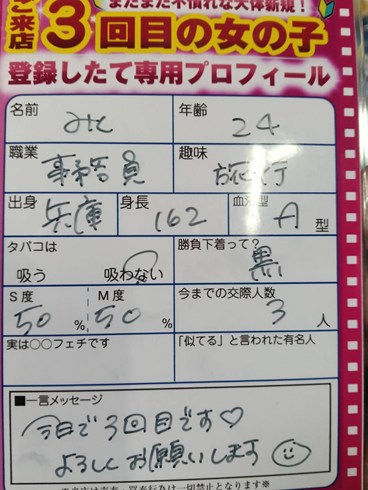 まだまだ不慣れな大体新規！
ご来店3回目の女の子
登録したて専用プロフィール
名前 みに 年齢 24
職業 事務員 趣味 旅行
出身 兵庫 身長 162 血液型 A型
タバコは 吸う 吸わない 勝負下着って？ 黒
S度 50% M度 50% 今までの交際人数 3人
実は○○フェチです 「似てる」と言われた有名人
■一言メッセージ
今日で3回目です♡
よろしくお願いします☺